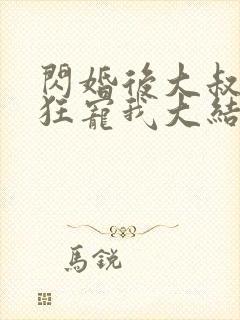 閃婚後大叔
狂寵我大結
馬銳